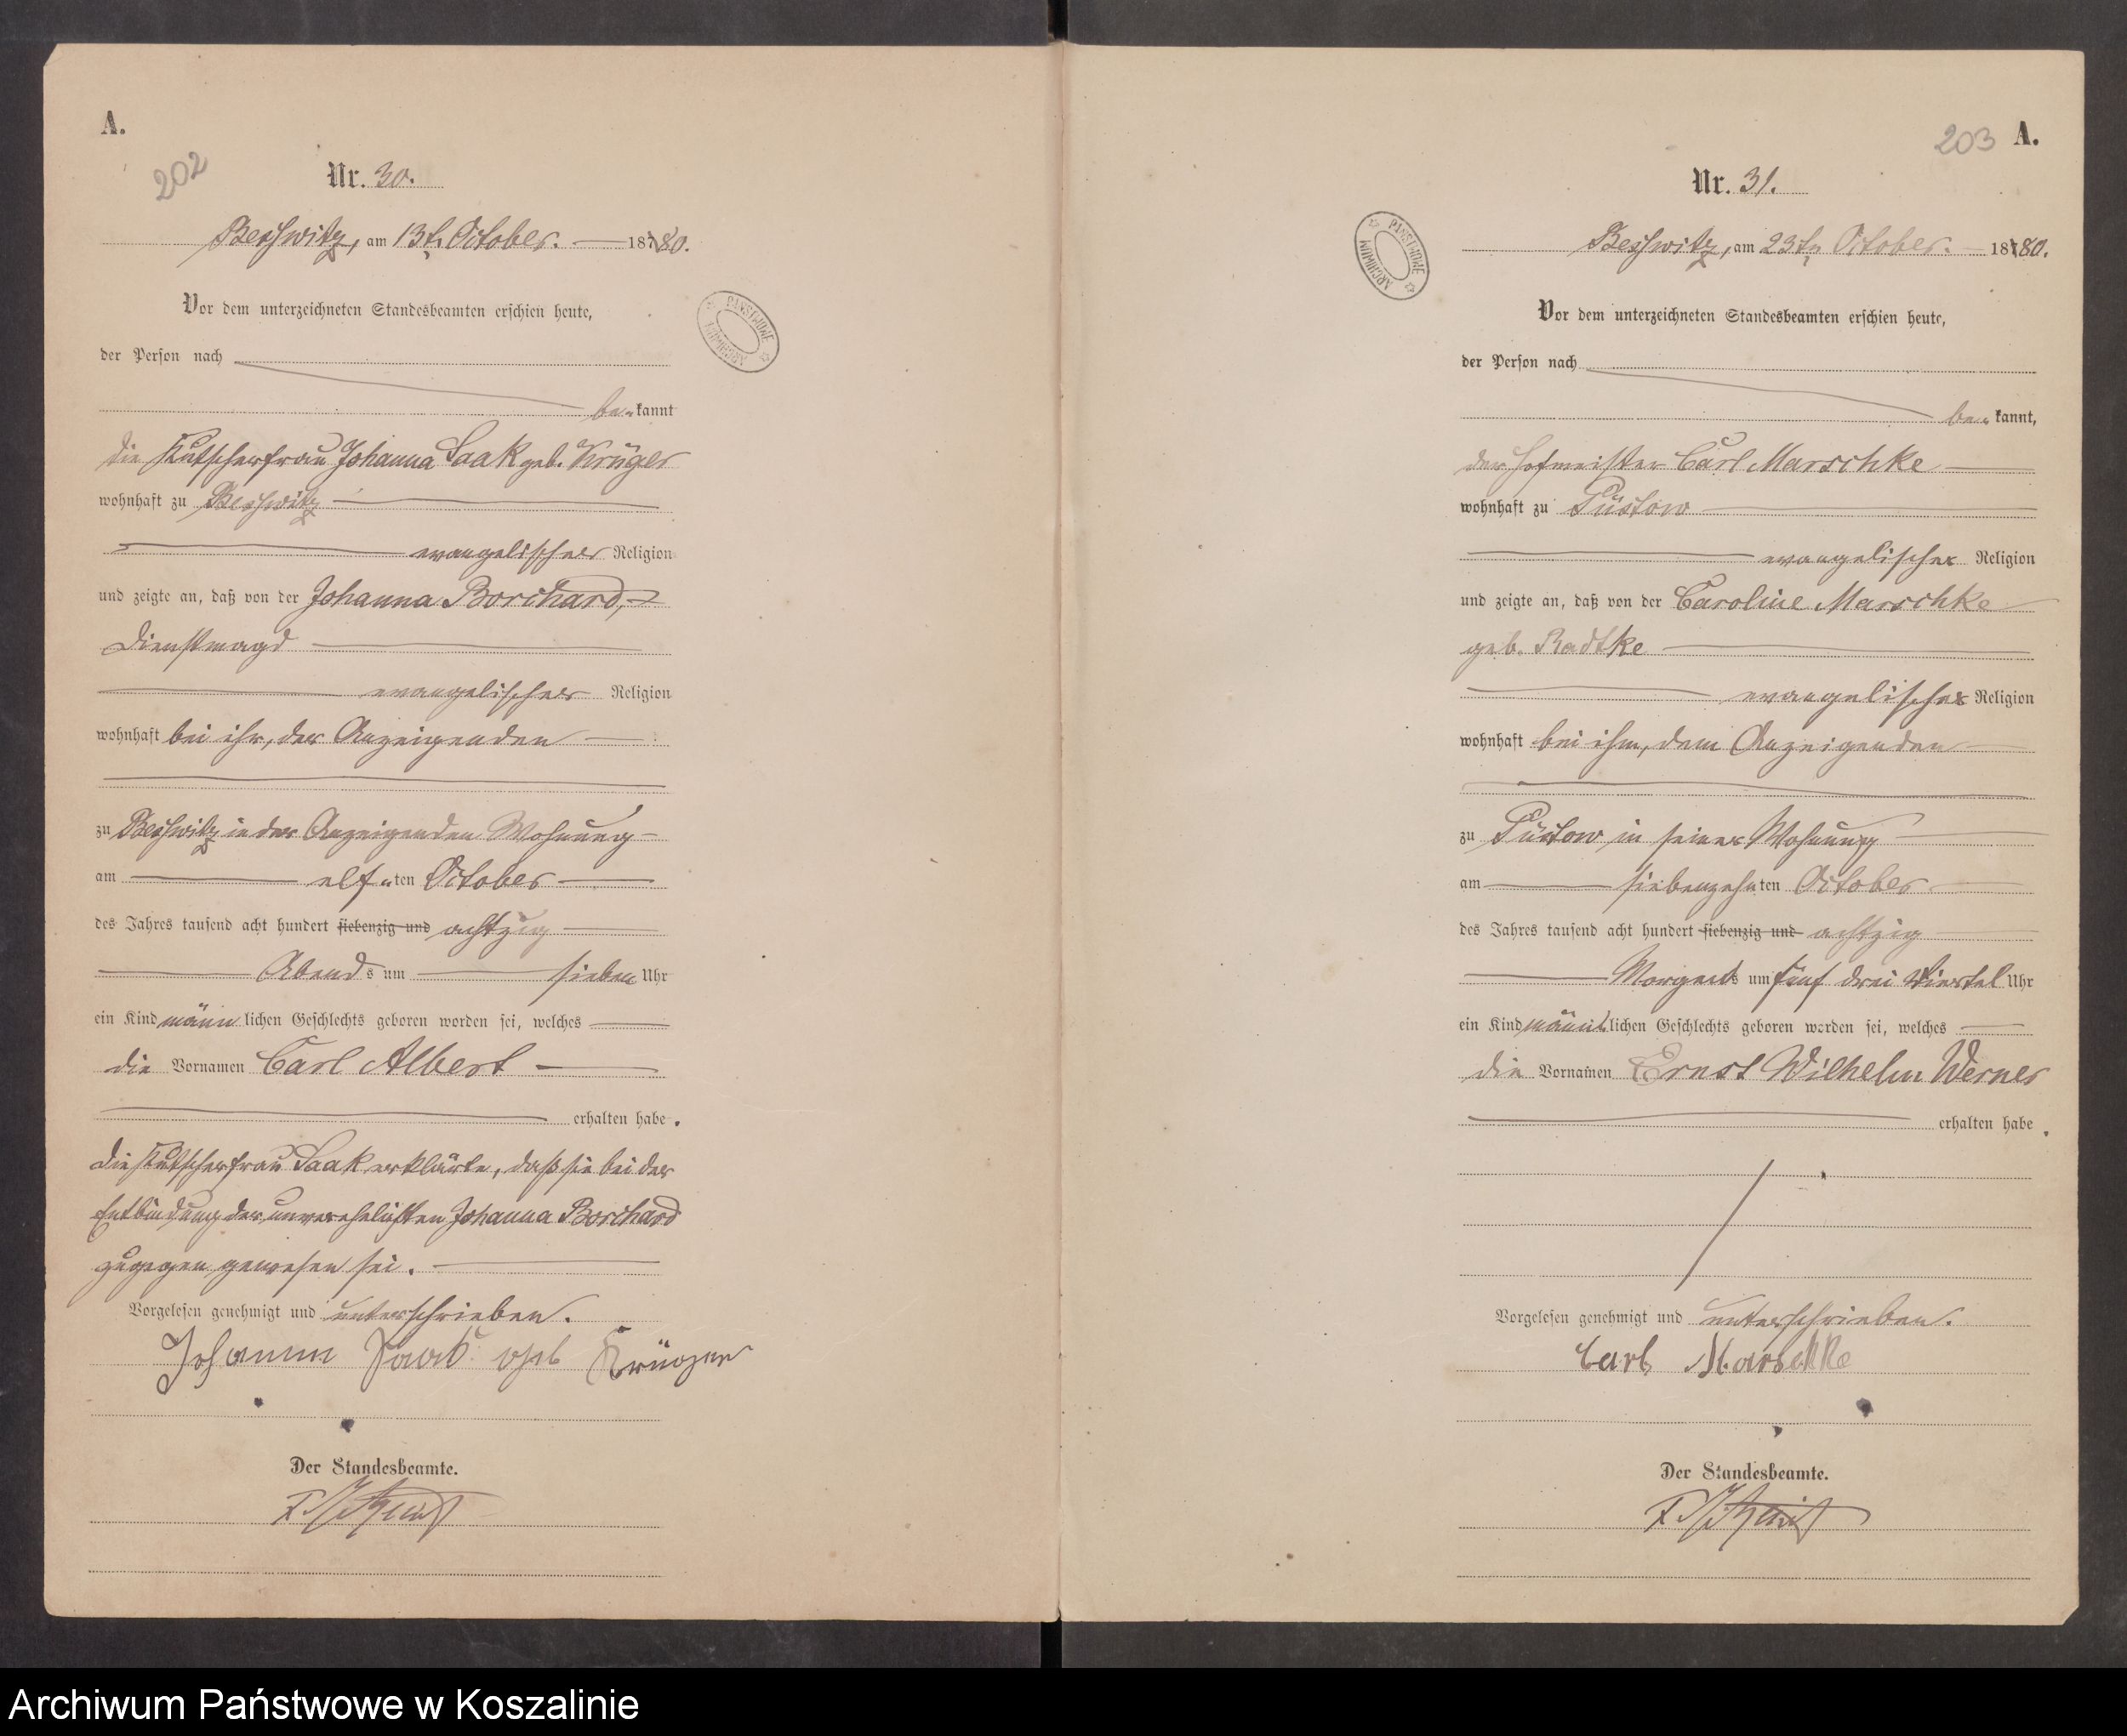 A.
202
Nr. 30.
Beßwitz, am 13ten October. 1880.
Vor dem unterzeichneten Standesbeamten erschien heute,
der Person nach
be-kannt
die Kutscherfrau Johanna Saak geb. Krüger
wohnhaft zu Beßwitz
evangelischer Religion
und zeigte an, daß von der Johanna Borchard,
Dienstmagd
evangelischer Religion
wohnhaft bei ihr, der Anzeigenden
zu Beßwitz in der Anzeigenden Wohnung
am elf-ten October
des Jahres tausend acht hundert siebenzig und achtzig
Abends um sieben Uhr
ein Kind männlichen Geschlechts geboren worden sei, welches
die Vornamen Carl Albert
erhalten habe.
Die Kutscherfrau Saak erklärte, daß sie bei der
Entbindung der unverehelichten Johanna Borchard
zugegen gewesen sei.
Vorgelesen genehmigt und unterschrieben.
Johanna Saak geb Krüger
Der Standesbeamte.
PAŃSTWOWE ARCHIWUM
203 A.
Nr. 31.
Beßwitz, am 23ten October. 1880.
Vor dem unterzeichneten Standesbeamten erschien heute,
der Person nach
be-kannt,
der Hofmeister Carl Marschke
wohnhaft zu Püstow
evangelischer Religion
und zeigte an, daß von der Caroline Marschke
geb. Radtke
evangelischer Religion
wohnhaft bei ihm, dem Anzeigenden
zu Püstow in seiner Wohnung
am siebenzehnten October
des Jahres tausend acht hundert siebenzig und achtzig
Morgens um fünf drei Viertel Uhr
ein Kind männlichen Geschlechts geboren worden sei, welches
die Vornamen Ernst Wilhelm Werner
erhalten habe.
Vorgelesen genehmigt und unterschrieben.
Carl Marschke
Der Standesbeamte.
PAŃSTWOWE ARCHIWUM
Archiwum Państwowe w Koszalinie